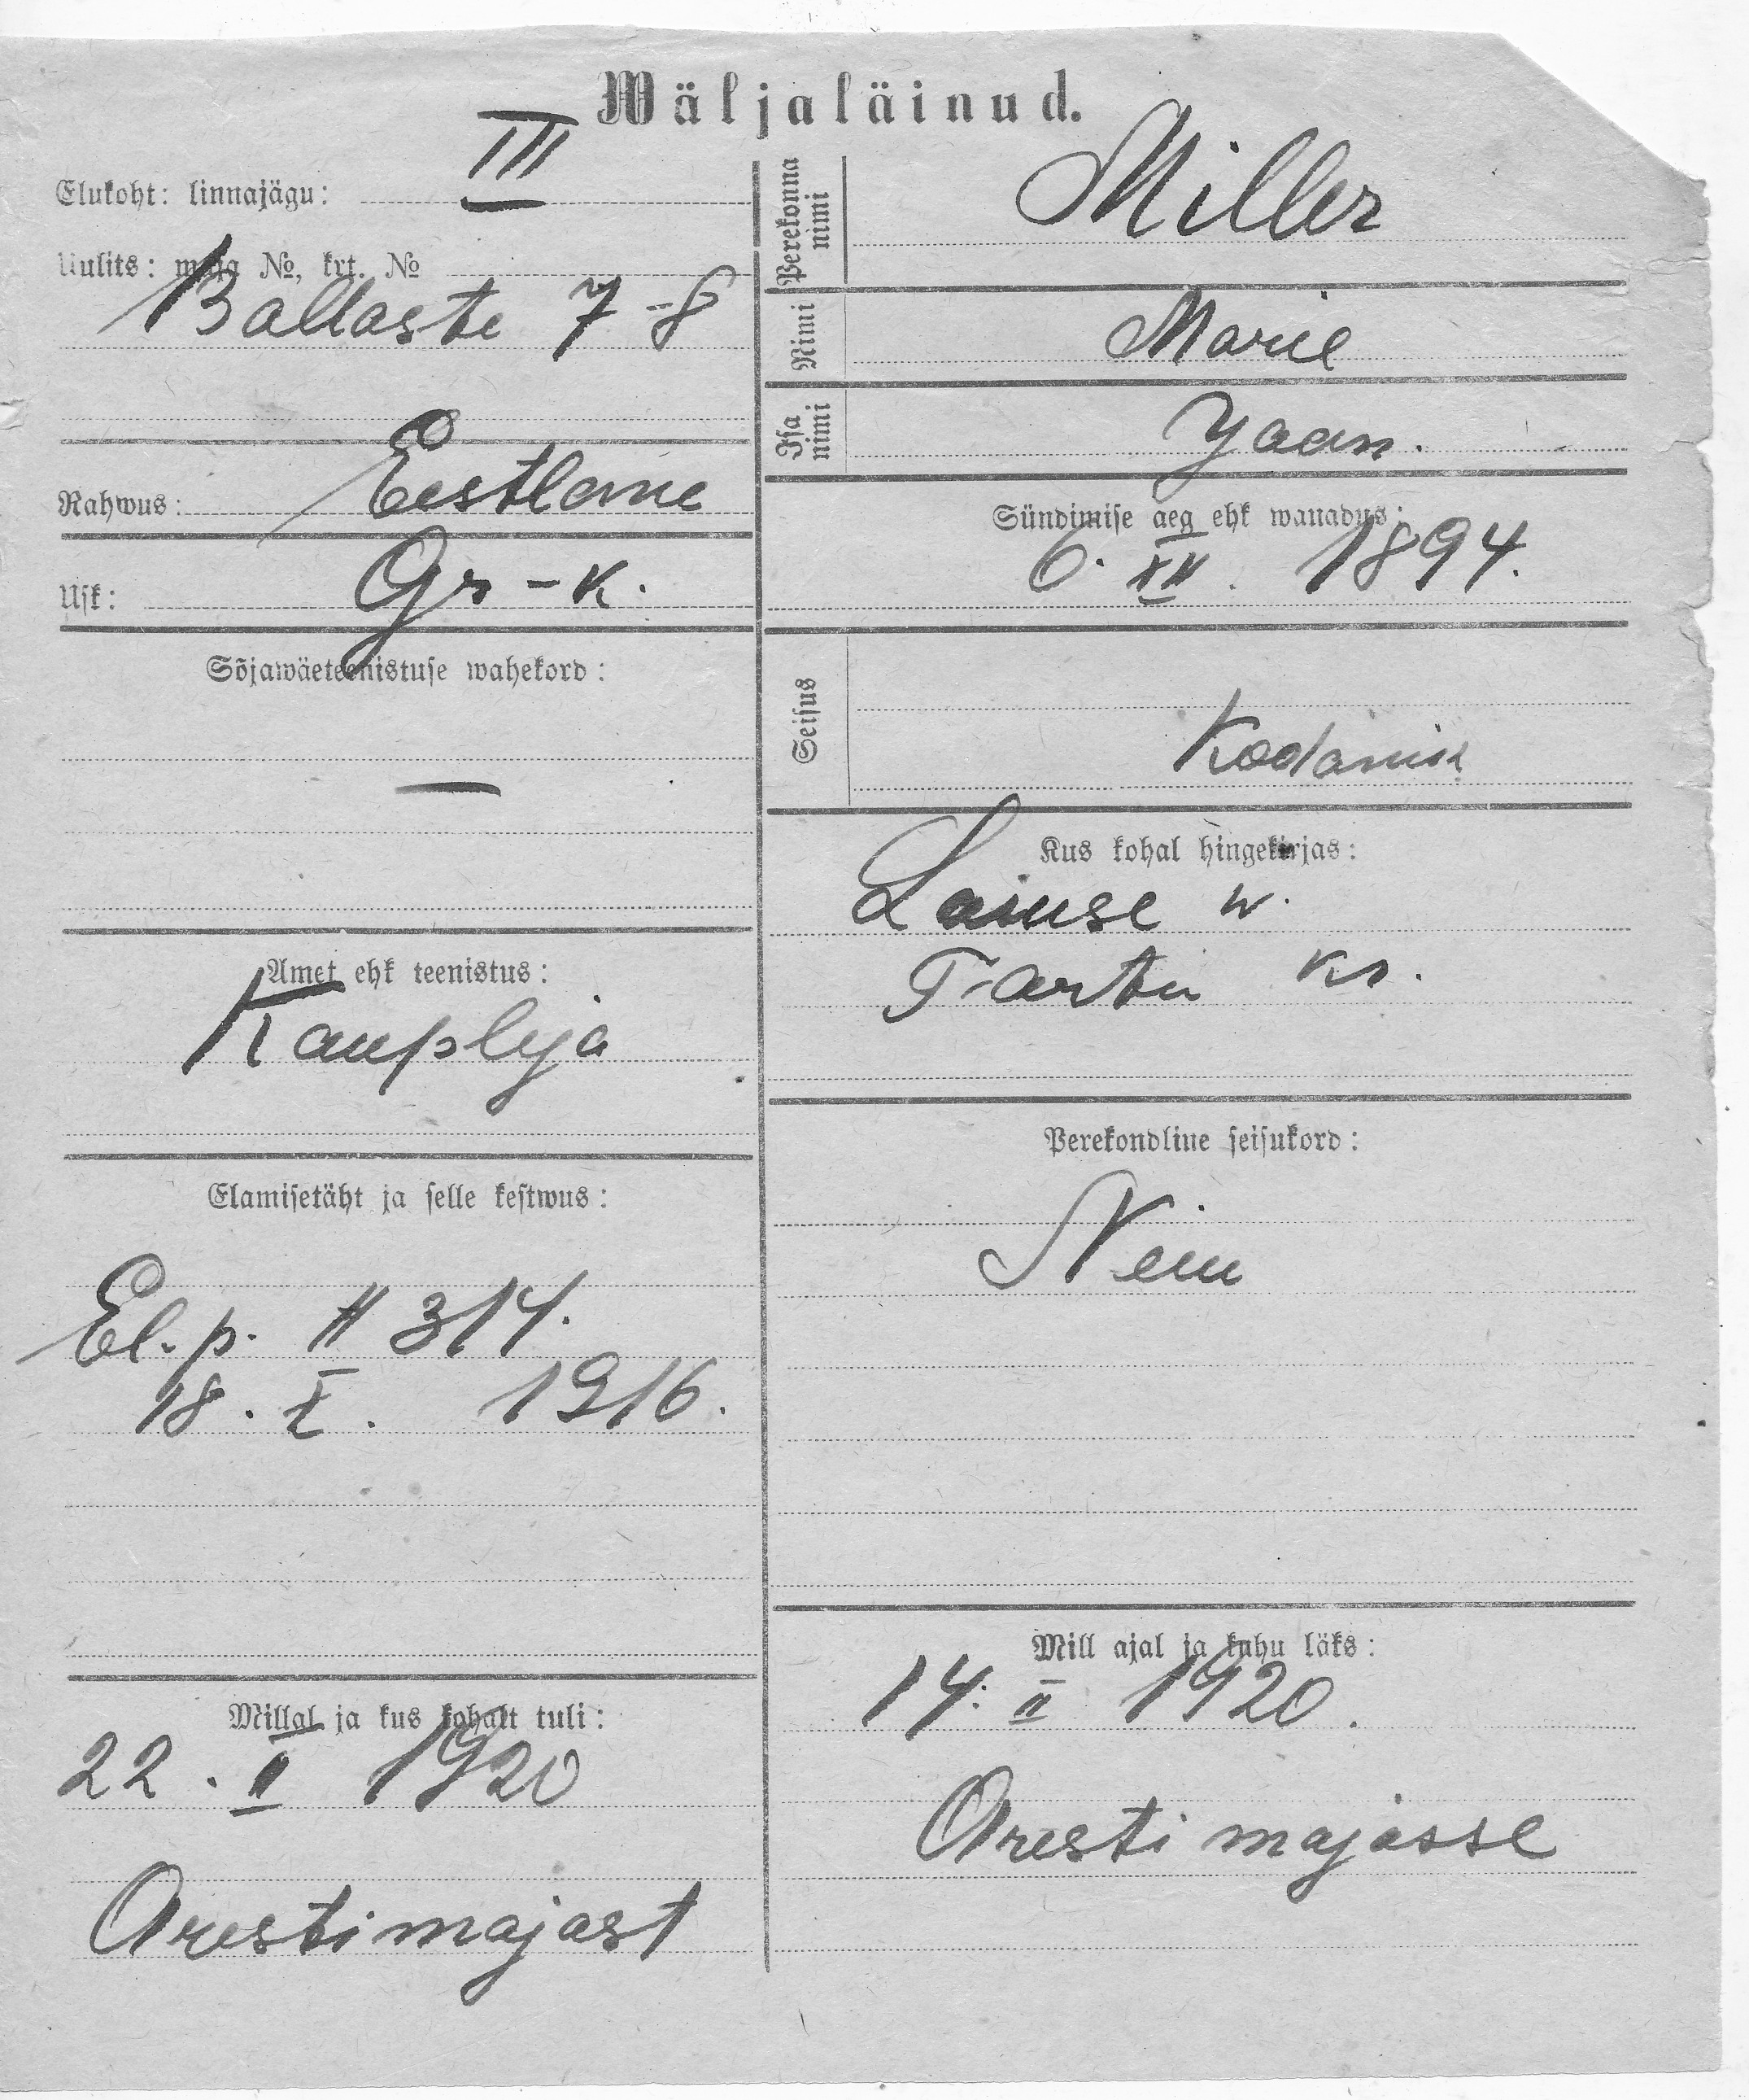 Wäljaläinud.
Elukoht: linnajägu: III
Uulits: maja №, krt. №
Ballaste 7-8
Rahwus: Eestlane
Usk: Gr-k.
Sõjawäeteenistuse wahekord:
—
Amet ehk teenistus:
Kaupleja
Elamisetäht ja selle kestwus:
El. p. # 314.
18. X. 1916.
Millal ja kus kohalt tuli:
22. II 1920
Arestimajast
Perekonna nimi Miller
Nimi Marie
Isa nimi Jaan.
Sündimise aeg ehk wanadus:
6. XII. 1894.
Seisus
Kodanik
Kus kohal hingekirjas:
Laiuse w.
Tartu kr.
Perekondline seisukord:
Neiu
Mill ajal ja kuhu läks:
14. II 1920.
Aresti majasse